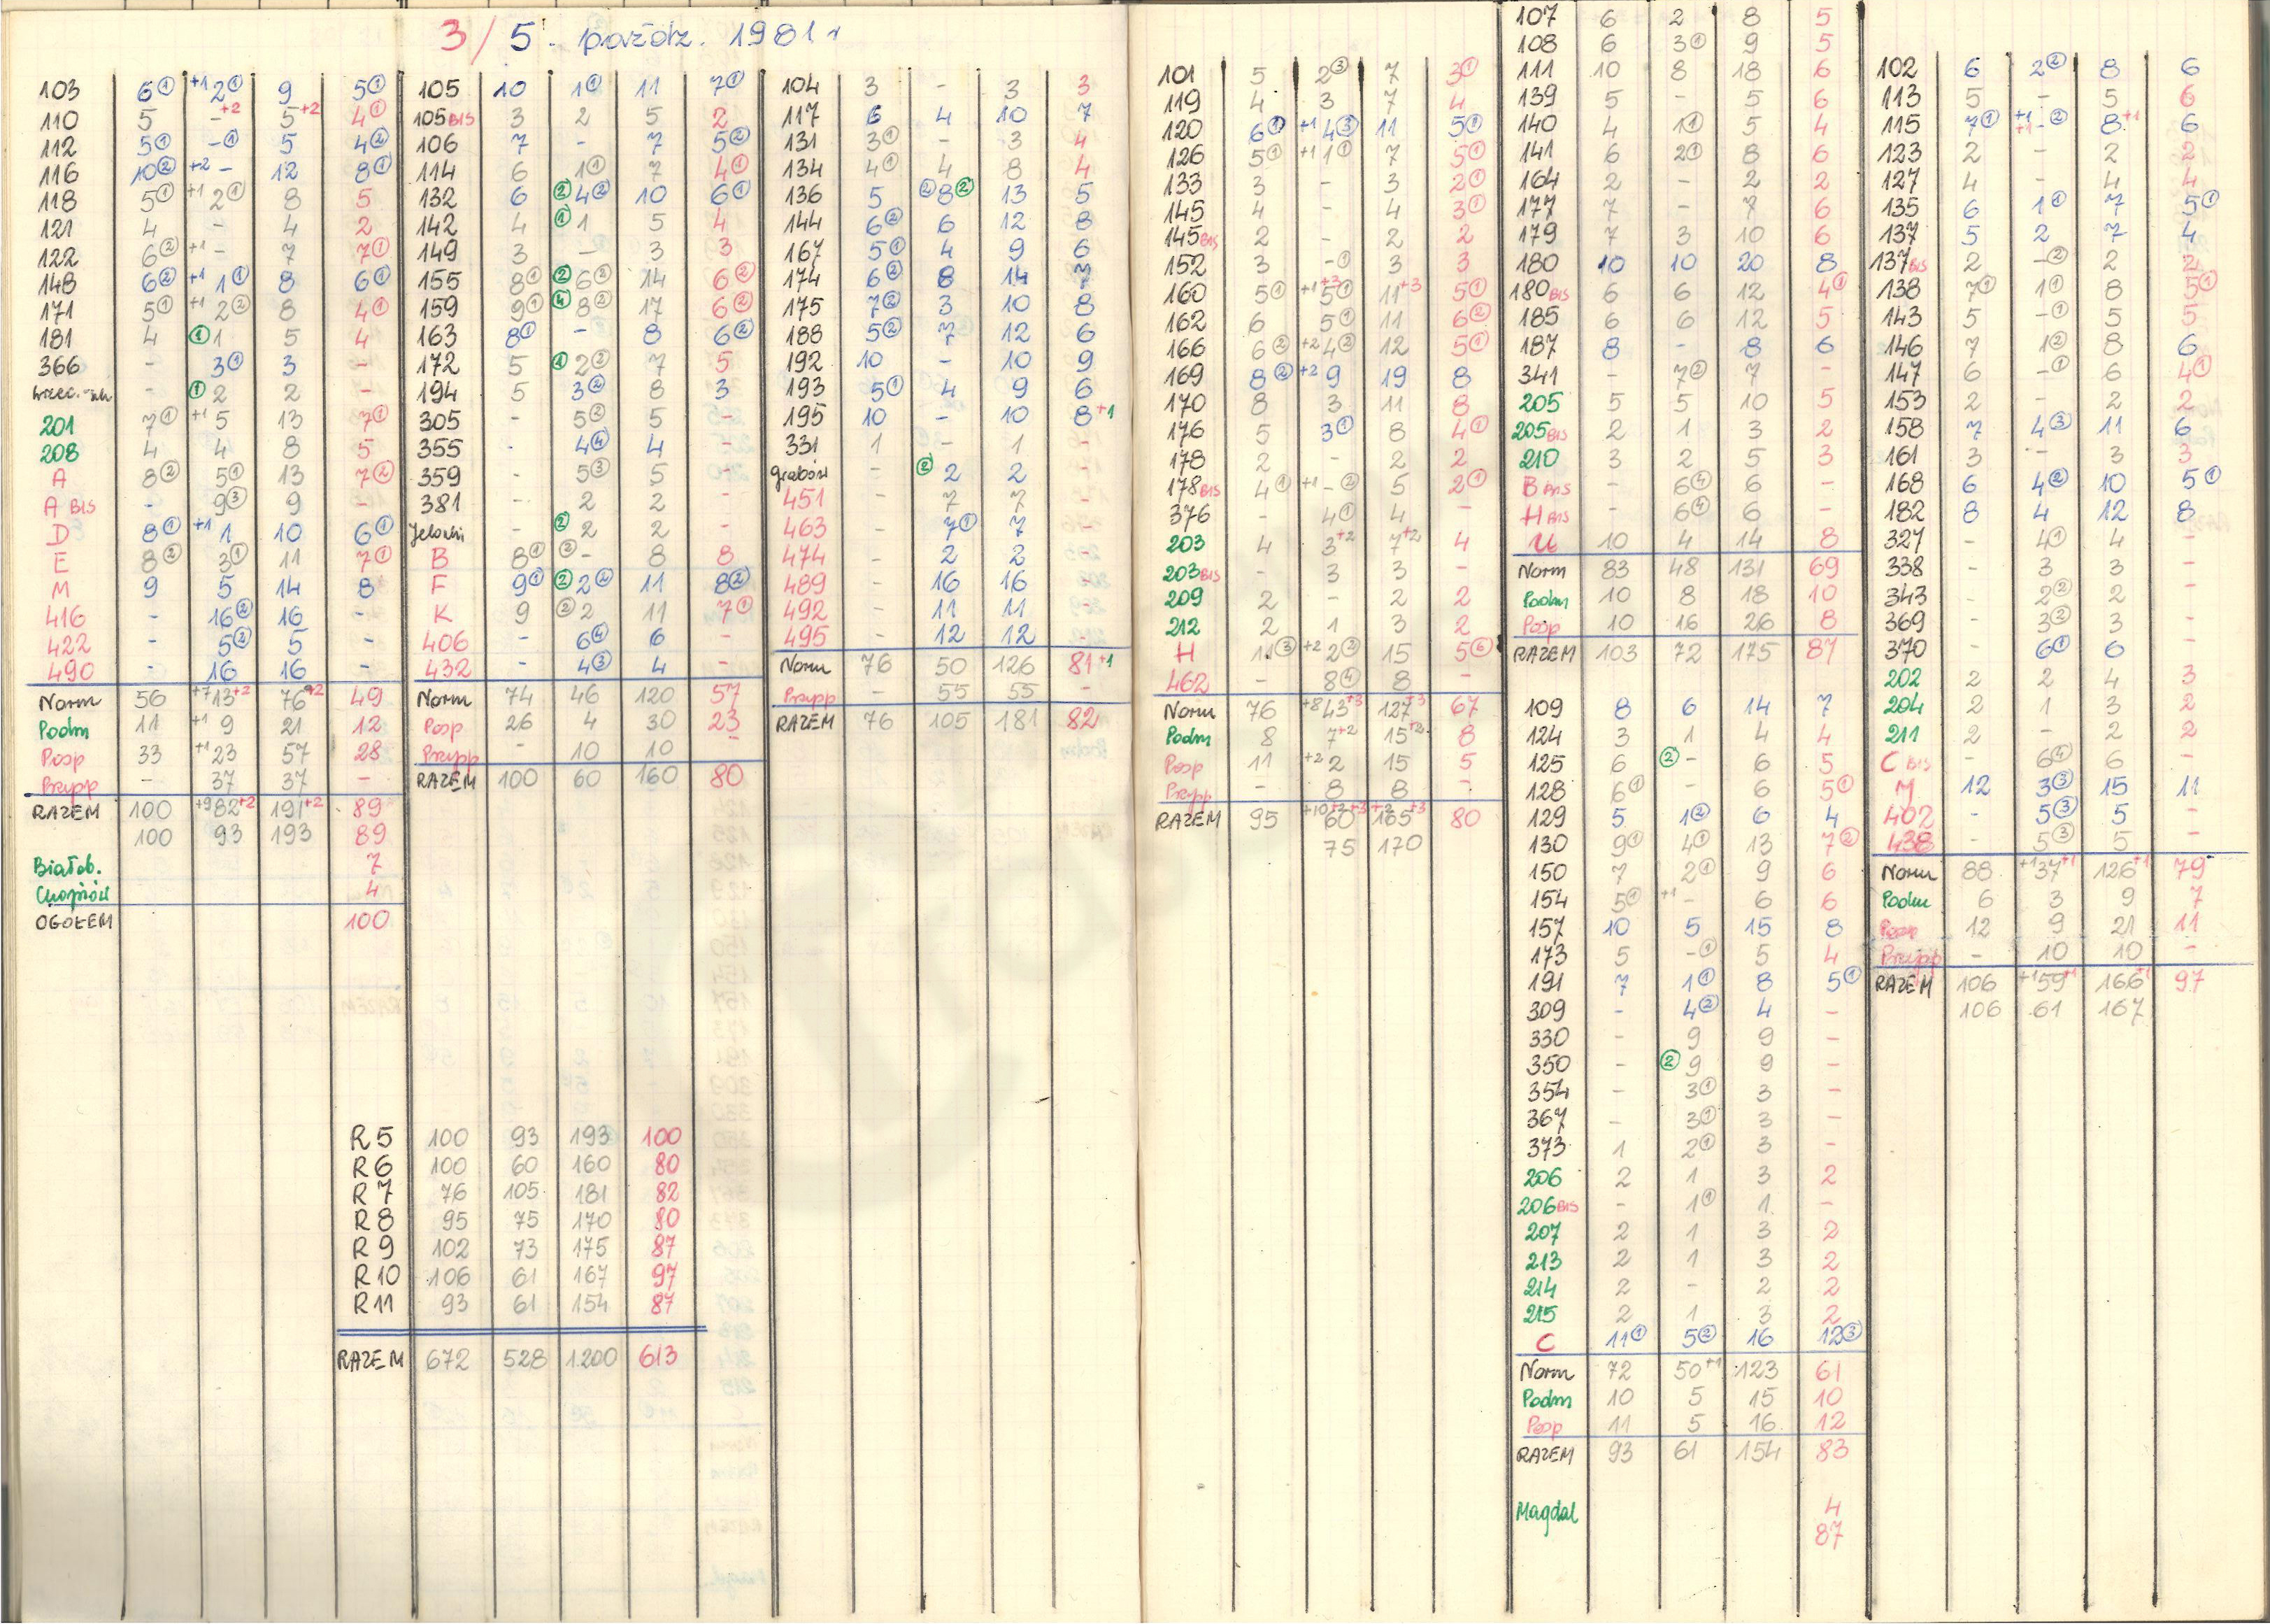 3/5. paźdz. 1981 r
103 6① +1 2① 9 5①
110 5 - +2 5 +2 4①
112 5① -① 5 4②
116 10② +2 - 12 8①
118 5① +1 2① 8 5
121 4 - 4 2
122 6② +1 - 7 7①
148 6② +1 1① 8 6①
171 5① +1 2② 8 4①
181 4 ①1 5 4
366 - 3① 3 -
- ①2 2 -
201 7① +1 5 13 7①
208 4 4 8 5
A 8② 5① 13 7②
A BIS - 9③ 9 -
D 8① +1 1 10 6①
E 8② 3① 11 7①
M 9 5 14 8
416 - 16② 16 -
422 - 5② 5 -
490 - 16 16 -
Norm 56 +7 13 +2 76 +2 49
Podm 11 +1 9 21 12
Posp 33 +1 23 57 28
Przysp - 37 37 -
RAZEM 100 +9 82 +2 191 +2 89
100 93 193 89
Białob. 7
Chojnów 4
OGOŁEM 100
105 10 1① 11 7①
105 BIS 3 2 5 2
106 7 - 7 5②
114 6 1① 7 4①
132 6 ②4② 10 6①
142 4 ①1 5 4
149 3 - 3 3
155 8① ②6② 14 6②
159 9① ④8② 17 6②
163 8① - 8 6②
172 5 ①2② 7 5
194 5 3② 8 3
305 - 5② 5 -
355 - 4④ 4 -
359 - 5③ 5 -
381 - 2 2 -
Jelonki - ②2 2 -
B 8① ②- 8 8
F 9① ②2② 11 8②
K 9 ②2 11 7①
406 - 6④ 6 -
432 - 4③ 4 -
Norm 74 46 120 57
Posp 26 4 30 23
Przysp - 10 10 -
RAZEM 100 60 160 80
104 3 - 3 3
117 6 4 10 7
131 3① - 3 4
134 4① 4 8 4
136 5 ②8② 13 5
144 6② 6 12 8
167 5① 4 9 6
174 6② 8 14 7
175 7② 3 10 8
188 5② 7 12 6
192 10 - 10 9
193 5① 4 9 6
195 10 - 10 8 +1
331 1 - 1 -
Grabów - ②2 2 -
451 - 7 7 -
463 - 7① 7 -
474 - 2 2 -
489 - 16 16 -
492 - 11 11 -
495 - 12 12 -
Norm 76 50 126 81 +1
Przysp - 55 55 -
RAZEM 76 105 181 82
R5 100 93 193 100
R6 100 60 160 80
R7 76 105 181 82
R8 95 75 170 80
R9 102 73 175 87
R10 106 61 167 97
R11 93 61 154 87
RAZEM 672 528 1200 613
101 5 2③ 7 3①
119 4 3 7 4
120 6① +1 4③ 11 5①
126 5① +1 1① 7 5①
133 3 - 3 2①
145 4 - 4 3①
145 BIS 2 - 2 2
152 3 -① 3 3
160 5① +1 5① +3 11 +3 5①
162 6 5① 11 6②
166 6② +2 4② 12 5①
169 8② +2 9 19 8
170 8 3 11 8
176 5 3① 8 4①
178 2 - 2 2
178 BIS 4① +1 -② 5 2①
376 - 4① 4 -
203 4 3 +2 7 +2 4
203 BIS - 3 3 -
209 2 - 2 2
212 2 1 3 2
H 11③ +2 2③ 15 5⑥
462 - 8④ 8 -
Norm 76 +8 43 +3 127 +3 67
Podm 8 7 +2 15 +2 8
Posp 11 +2 2 15 5
Przysp - 8 8 -
RAZEM 95 +10 60 +2 +3 165 +2 +3 80
75 170
107 6 2 8 5
108 6 3① 9 5
111 10 8 18 6
139 5 - 5 6
140 4 1① 5 4
141 6 2① 8 6
164 2 - 2 2
177 7 - 7 6
179 7 3 10 6
180 10 10 20 8
180 BIS 6 6 12 4①
185 6 6 12 5
187 8 - 8 6
341 - 7② 7 -
205 5 5 10 5
205 BIS 2 1 3 2
210 3 2 5 3
B BIS - 6④ 6 -
H BIS - 6④ 6 -
U 10 4 14 8
Norm 83 48 131 69
Podm 10 8 18 10
Posp 10 16 26 8
RAZEM 103 72 175 87
109 8 6 14 7
124 3 1 4 4
125 6 ②- 6 5
128 6① - 6 5①
129 5 1② 6 4
130 9① 4① 13 7②
150 7 2① 9 6
154 5① +1 - 6 6
157 10 5 15 8
173 5 -① 5 4
191 7 1① 8 5①
309 - 4② 4 -
330 - 9 9 -
350 - ②9 9 -
354 - 3① 3 -
367 - 3① 3 -
373 1 2① 3 -
206 2 1 3 2
206 BIS - 1① 1 -
207 2 1 3 2
213 2 1 3 2
214 2 - 2 2
215 2 1 3 2
C 11① 5② 16 12③
Norm 72 50 +1 123 61
Podm 10 5 15 10
Posp 11 5 16 12
RAZEM 93 61 154 83
Magdal 4
87
102 6 2② 8 6
113 5 - 5 6
115 7① +1 +1 -② 8 +1 6
123 2 - 2 2
127 4 - 4 4
135 6 1① 7 5①
137 5 2 7 4
137 BIS 2 -② 2 2
138 7① 1① 8 5①
143 5 -① 5 5
146 7 1② 8 6
147 6 -① 6 4①
153 2 - 2 2
158 7 4③ 11 6
161 3 - 3 3
168 6 4② 10 5①
182 8 4 12 8
327 - 4① 4 -
338 - 3 3 -
343 - 2② 2 -
369 - 3② 3 -
370 - 6① 6 -
202 2 2 4 3
204 2 1 3 2
211 2 - 2 2
C BIS - 6④ 6 -
M 12 3③ 15 11
402 - 5③ 5 -
438 - 5③ 5 -
Norm 88 +1 37 +1 126 +1 79
Podm 6 3 9 7
Posp 12 9 21 11
Przysp - 10 10 -
RAZEM 106 +1 59 +1 166 +1 97
106 61 167